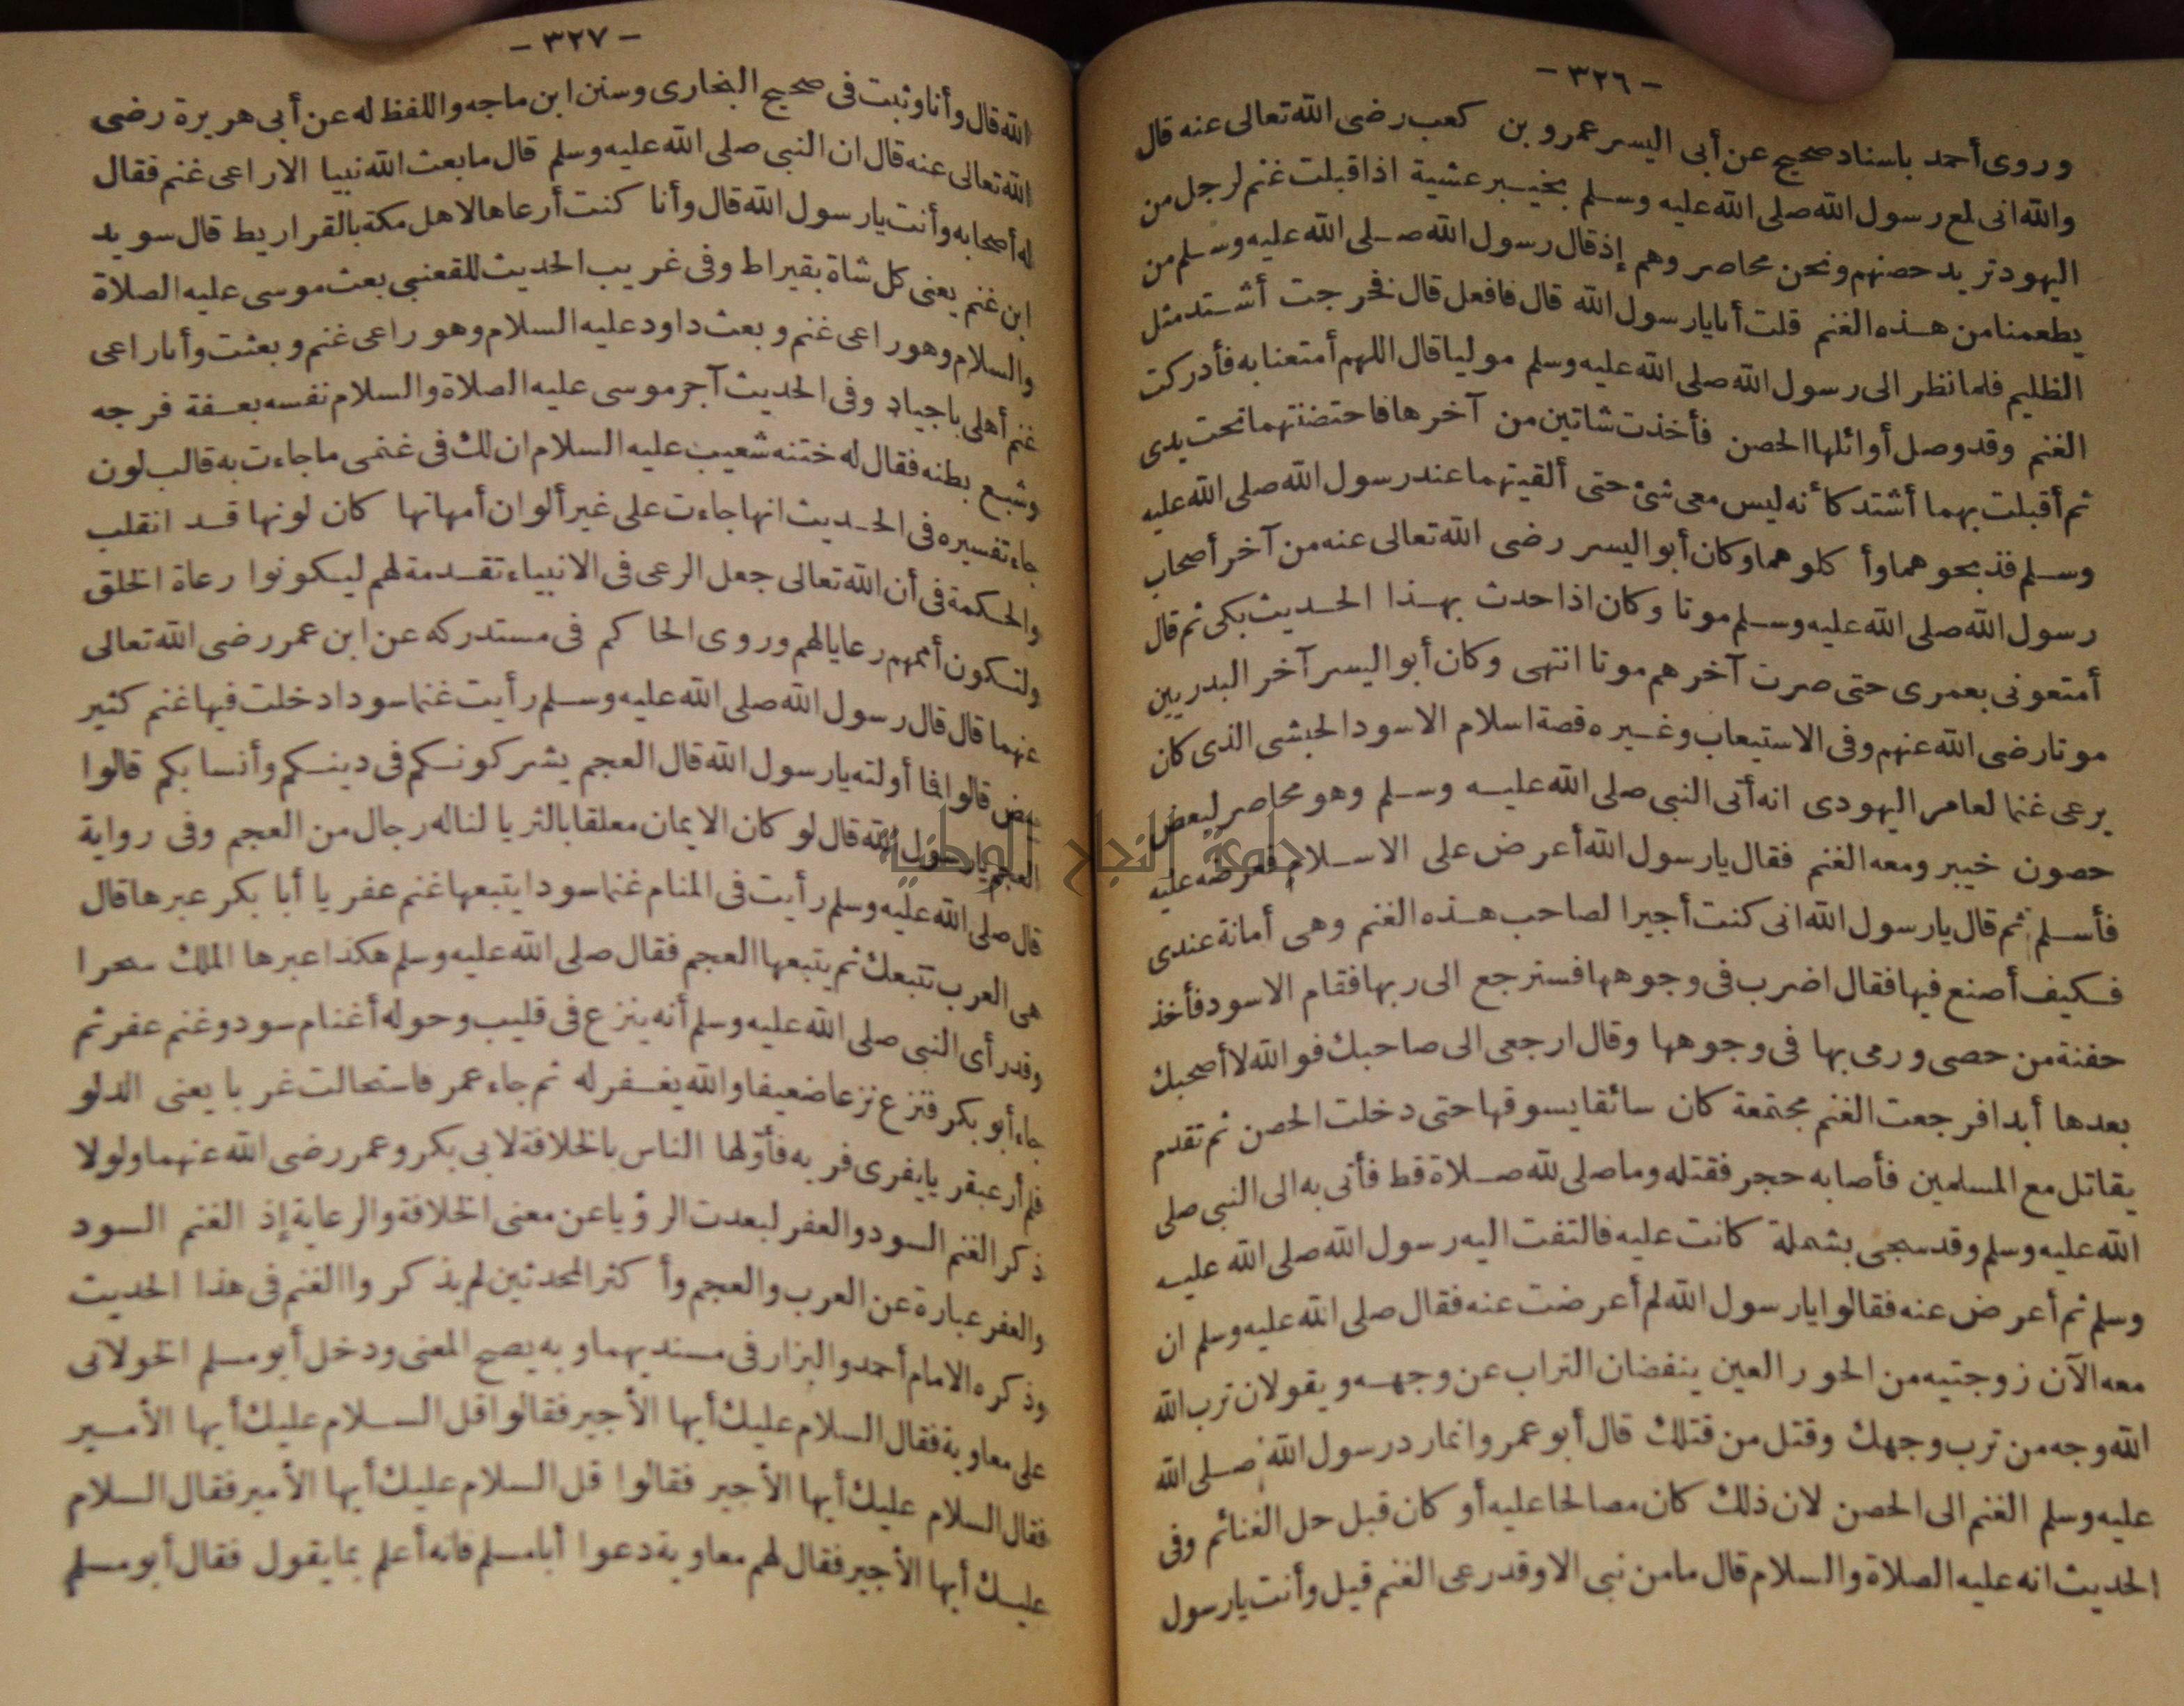 - ٣٢٦ -
وروى أحمد باسناد صحيح عن أبى اليسر عمرو بن كعب رضى الله تعالى عنه قال
والله انى لمع رسول الله صلى الله عليه وسلم بخيبر عشية اذ اقبلت غنم لرجل من
اليهود تريد حصنهم ونحن محاصروهم إذ قال رسول الله صلى الله عليه وسلم من
يطعمنا من هذه الغنم قلت أنا يارسول الله قال فافعل قال فخرجت أشتد مثل
الظليم فلما نظر الى رسول الله صلى الله عليه وسلم موليا قال اللهم أمتعنا به فأدركت
الغنم وقد وصل أوائلها الحصن فأخذت شاتين من آخرها فاحتضنتهما تحت يدى
ثم أقبلت بهما أشتد كأنه ليس معى شئ حتى ألقيتهما عند رسول الله صلى الله عليه
وسلم فذبحوهما وأكلوهما وكان أبو اليسر رضى الله تعالى عنه من آخر أصحاب
رسول الله صلى الله عليه وسلم موتا وكان اذا حدث بهذا الحديث بكى ثم قال
أمتعونى بعمرى حتى صرت آخرهم موتا انتهى وكان أبو اليسر آخر البدريين
موتا رضى الله عنهم وفى الاستيعاب وغيره قصة اسلام الاسود الحبشى الذى كان
يرعى غنما لعامر اليهودى انه أتى النبى صلى الله عليه وسلم وهو محاصر لبعض
حصون خيبر ومعه الغنم فقال يارسول الله أعرض على الاسلام فعرضه عليه
فأسلم ثم قال يارسول الله انى كنت أجيرا لصاحب هذه الغنم وهى أمانة عندى
فكيف أصنع فيها فقال اضرب فى وجوهها فسترجع الى ربها فقام الاسود فأخذ
حفنة من حصى ورمى بها فى وجوهها وقال ارجعى الى صاحبك فوالله لا أصحبك
بعدها أبدا فرجعت الغنم مجتمعة كان سائقا يسوقها حتى دخلت الحصن ثم تقدم
يقاتل مع المسلمين فأصابه حجر فقتله وما صلى لله صلاة قط فأتى به الى النبى صلى
الله عليه وسلم وقد سجى بشملة كانت عليه فالتفت اليه رسول الله صلى الله عليه
وسلم ثم أعرض عنه فقالوا يارسول الله لم أعرضت عنه فقال صلى الله عليه وسلم ان
معه الآن زوجتيه من الحور العين ينفضان التراب عن وجهه ويقولان ترب الله
الله وجه من ترب وجهك وقتل من قتلك قال أبو عمر وانما رد رسول الله صلى الله
عليه وسلم الغنم الى الحصن لان ذلك كان مصالحا عليه أو كان قبل حل الغنائم وفى
الحديث انه عليه الصلاة والسلام قال ما من نبى الا وقد رعى الغنم قيل وأنت يارسول
- ٣٢٧ -
الله قال وأنا وثبت فى صحيح البخارى وسنن ابن ماجه واللفظ له عن أبى هريرة رضى
الله تعالى عنه قال ان النبى صلى الله عليه وسلم قال ما بعث الله نبيا الا راعى غنم فقال
له أصحابه وأنت يارسول الله قال وأنا كنت أرعاها لاهل مكة بالقراريط قال سويد
ابن غنم يعنى كل شاة بقيراط وفى غريب الحديث للقعنبى بعث موسى عليه الصلاة
والسلام وهو راعى غنم وبعث داود عليه السلام وهو راعى غنم وبعثت وأنا راعى
غنم أهلى باجياد وفى الحديث آجر موسى عليه الصلاة والسلام نفسه بعفة فرجه
وشبع بطنه فقال له ختنه شعيب عليه السلام ان لك فى غنمى ما جاءت به قالب لون
جاء تفسيره فى الحديث انها جاءت على غير ألوان أمهاتها كان لونها قد انقلب
والحكمة فى أن الله تعالى جعل الرعى فى الانبياء تقدمة لهم ليكونوا رعاة الخلق
ولتكون أممهم رعايا لهم وروى الحاكم فى مستدركه عن ابن عمر رضى الله تعالى
عنهما قال قال رسول الله صلى الله عليه وسلم رأيت غنما سودا دخلت فيها غنم كثير
بيض قالوا فما أولته يارسول الله قال العجم يشركونكم فى دينكم وأنسابكم قالوا
العجم يارسول الله قال لو كان الايمان معلقا بالثريا لناله رجال من العجم وفى رواية
قال صلى الله عليه وسلم رأيت فى المنام غنما سودا يتبعها غنم عفر يا أبا بكر عبرها قال
هى العرب تتبعك ثم يتبعها العجم فقال صلى الله عليه وسلم هكذا عبرها الملك سحرا
وقد رأى النبى صلى الله عليه وسلم أنه ينزع فى قليب وحوله أغنام سود وغنم عفر ثم
جاء أبو بكر فنزع نزعا ضعيفا والله يغفر له ثم جاء عمر فاستحالت غربا يعنى الدلو
فلم أر عبقريا يفرى فريه فأولها الناس بالخلافة لابى بكر وعمر رضى الله عنهما ولولا
ذكر الغنم السود والعفر لبعدت الرؤيا عن معنى الخلافة والرعاية إذ الغنم السود
والعفر عبارة عن العرب والعجم وأكثر المحدثين لم يذكروا الغنم فى هذا الحديث
وذكره الامام أحمد والبزار فى مسنديهما وبه يصح المعنى ودخل أبو مسلم الخولانى
على معاوية فقال السلام عليك أيها الأجير فقالوا قل السلام عليك أيها الأمير
فقال السلام عليك أيها الأجير فقالوا قل السلام عليك أيها الأمير فقال السلام
عليك أيها الأجير فقال لهم معاوية دعوا أبا مسلم فانه أعلم بما يقول فقال أبو مسلم
جامعة النجاح الوطنية